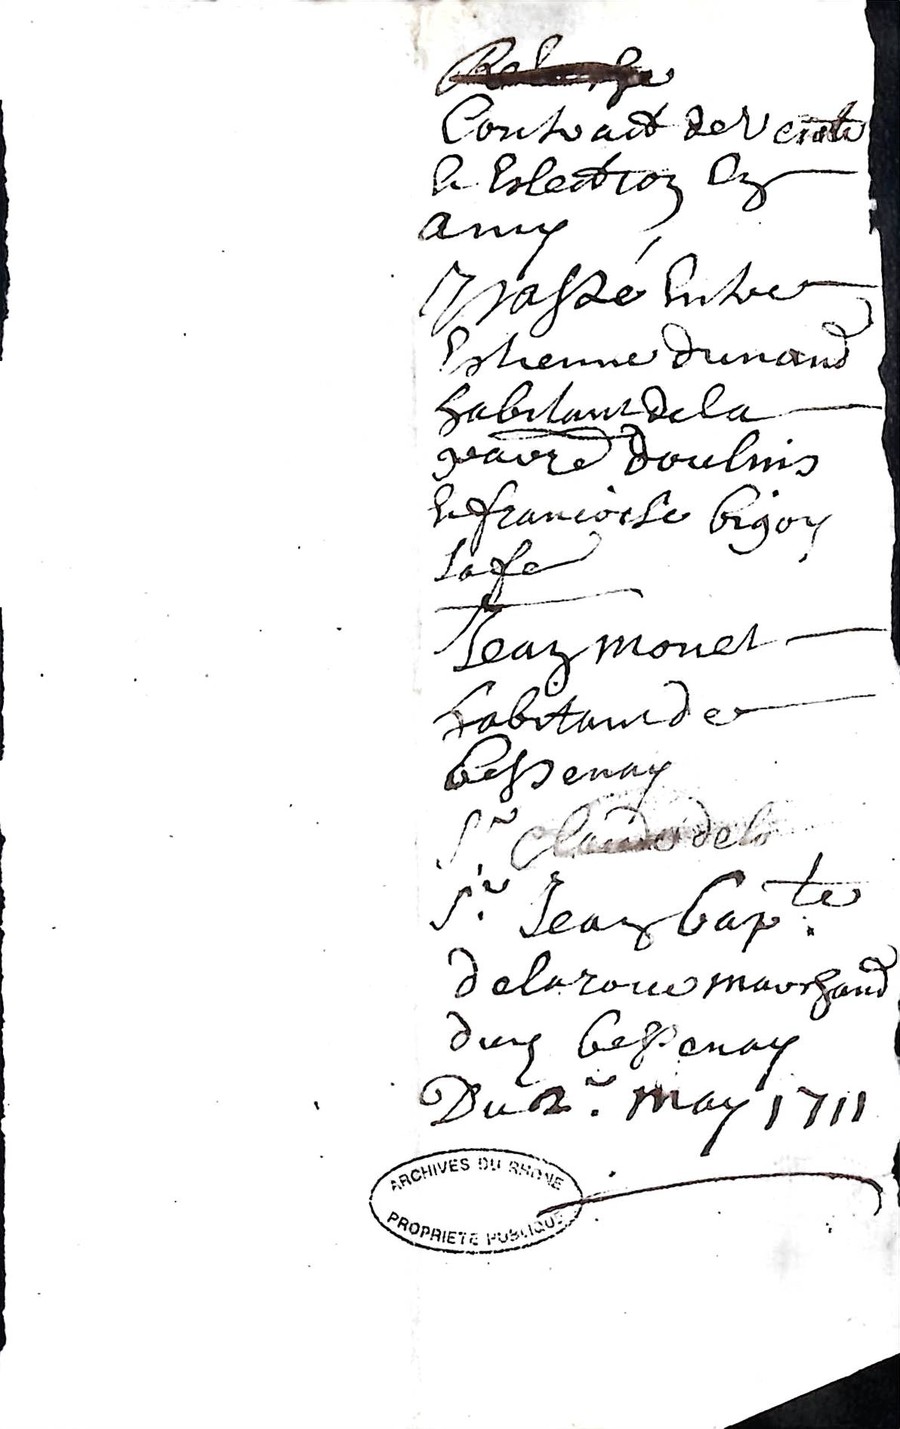 Contract de Vente
Et Eslection En
amy
passé Entre
Estienne dunand
habitant de la
paurre doulins
Et francoise bigoy
sa fe
Jean monet
habitant de
bessenay
Sr. Claude dela
Sr. Jean bapte.
delaroue marchand
duq bessenay
Du 2e. may 1711
ARCHIVES DU RHONE
PROPRIETE PUBLIQUE